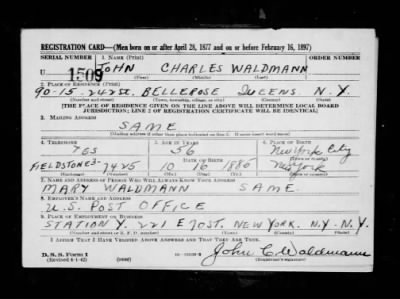 REGISTRATION CARD—(Men born on or after April 28, 1877 and on or before February 16, 1897)
SERIAL NUMBER 1. NAME (Print) ORDER NUMBER
U 1509 JOHN CHARLES WALDMANN
(First) (Middle) (Last)
2. PLACE OF RESIDENCE (Print)
90-15-242 ST. BELLEROSE QUEENS N.Y.
(Number and street) (Town, township, village, or city) (County) (State)
[THE PLACE OF RESIDENCE GIVEN ON THE LINE ABOVE WILL DETERMINE LOCAL BOARD
JURISDICTION; LINE 2 OF REGISTRATION CERTIFICATE WILL BE IDENTICAL]
3. MAILING ADDRESS
SAME
[Mailing address if other than place indicated on line 2. If same insert word same]
4. TELEPHONE 5. AGE IN YEARS 6. PLACE OF BIRTH
YES 56 New York City
DATE OF BIRTH (Town or county)
FIELDSTONE 3- 7425 10 16 1886 New York
(Exchange) (Number) (Mo.) (Day) (Yr.) (State or country)
7. NAME AND ADDRESS OF PERSON WHO WILL ALWAYS KNOW YOUR ADDRESS
MARY WALDMANN SAME
8. EMPLOYER'S NAME AND ADDRESS
U.S. POST OFFICE
9. PLACE OF EMPLOYMENT OR BUSINESS
STATION Y. 221 E 70 ST. NEW YORK. N.Y. N.Y.
(Number and street or R. F. D. number) (Town) (County) (State)
I AFFIRM THAT I HAVE VERIFIED ABOVE ANSWERS AND THAT THEY ARE TRUE.
D. S. S. Form 1
(Revised 4-1-42) (over)
John C Waldmann
(Registrant's signature)